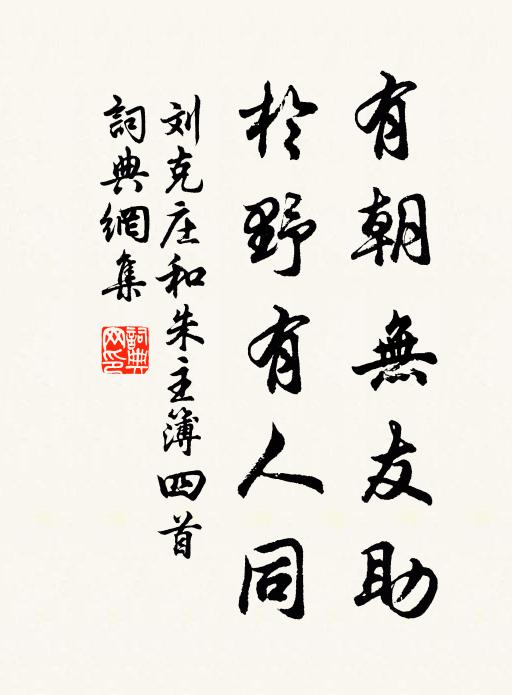 有朝無友助
於野有人同
刘克庄和朱主簿四首
詞典網集
詞典
网印